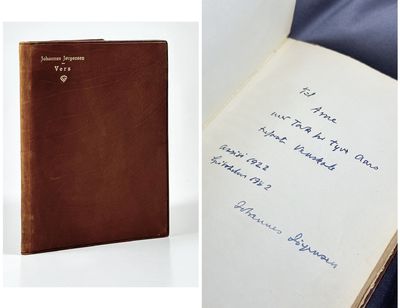 Johannes Jørgensen
Vers
Til Arne
med Tak for tyve Aars
trofast Venskab
Assisi 1922
1942
Johannes Jørgensen